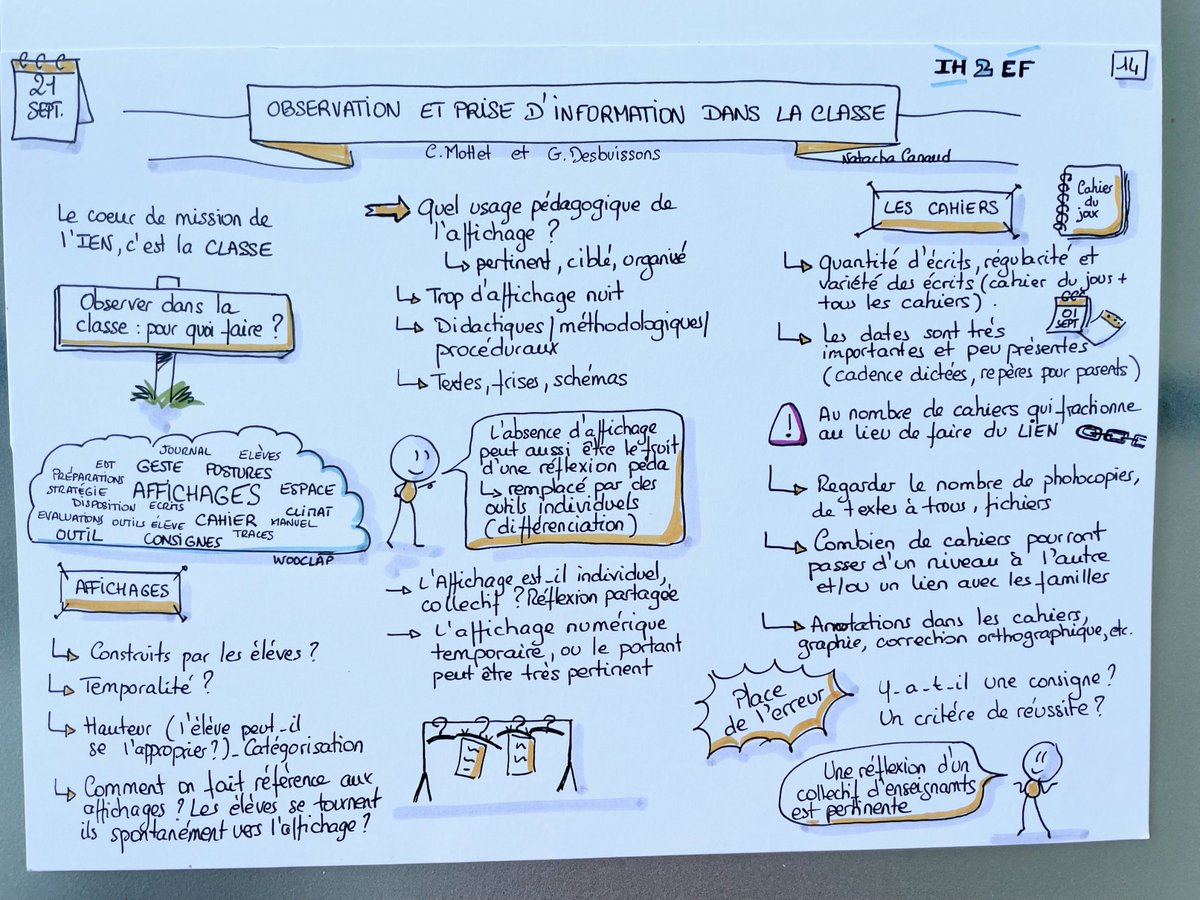 21
SEPT.
IH2EF
14
OBSERVATION ET PRISE D'INFORMATION DANS LA CLASSE
C. Mottet et G. Desbuissons
Natacha Canaud
Le coeur de mission de
l'IEN, c'est la CLASSE
Observer dans la
classe : pour quoi faire ?
JOURNAL
ELÈVES
EDT
GESTE
POSTURES
PRÉPARATIONS
STRATÉGIE
AFFICHAGES
ESPACE
DISPOSITION
ECRITS
CLIMAT
EVALUATIONS
OUTILS ÉLÈVE
CAHIER
MANUEL
OUTIL
CONSIGNES
TRACES
WOOCLAP
AFFICHAGES
Construits par les élèves ?
Temporalité ?
Hauteur (l'élève peut-il
se l'approprier ?)_Catégorisation
Comment on fait référence aux
affichages ? Les élèves se tournent
ils spontanément vers l'affichage ?
Quel usage pédagogique de
l'affichage ?
pertinent, ciblé, organisé
Trop d'affichage nuit
Didactiques/méthodologiques/
procéduraux
Textes, frises, schémas
L'absence d'affichage
peut aussi être le fruit
d'une réflexion péda
remplacé par des
outils individuels
(différenciation)
L'Affichage est-il individuel,
collectif ? Réflexion partagée
L'affichage numérique
temporaire, ou le portant
peut être très pertinent
LES CAHIERS
Cahier
du
jour
Quantité d'écrits, régularité et
variété des écrits (cahier du jour +
tous les cahiers).
01
SEPT
Les dates sont très
importantes et peu présentes
(cadence dictées, repères pour parents)
!
Au nombre de cahiers qui fractionne
au lieu de faire du LIEN
Regarder le nombre de photocopies,
de textes à trous, fichiers
Combien de cahiers pourront
passer d'un niveau à l'autre
et/ou un lien avec les familles
Annotations dans les cahiers,
graphie, correction orthographique, etc.
Place
de l'erreur
Y_a_t_il une consigne ?
Un critère de réussite ?
Une réflexion d'un
collectif d'enseignants
est pertinente